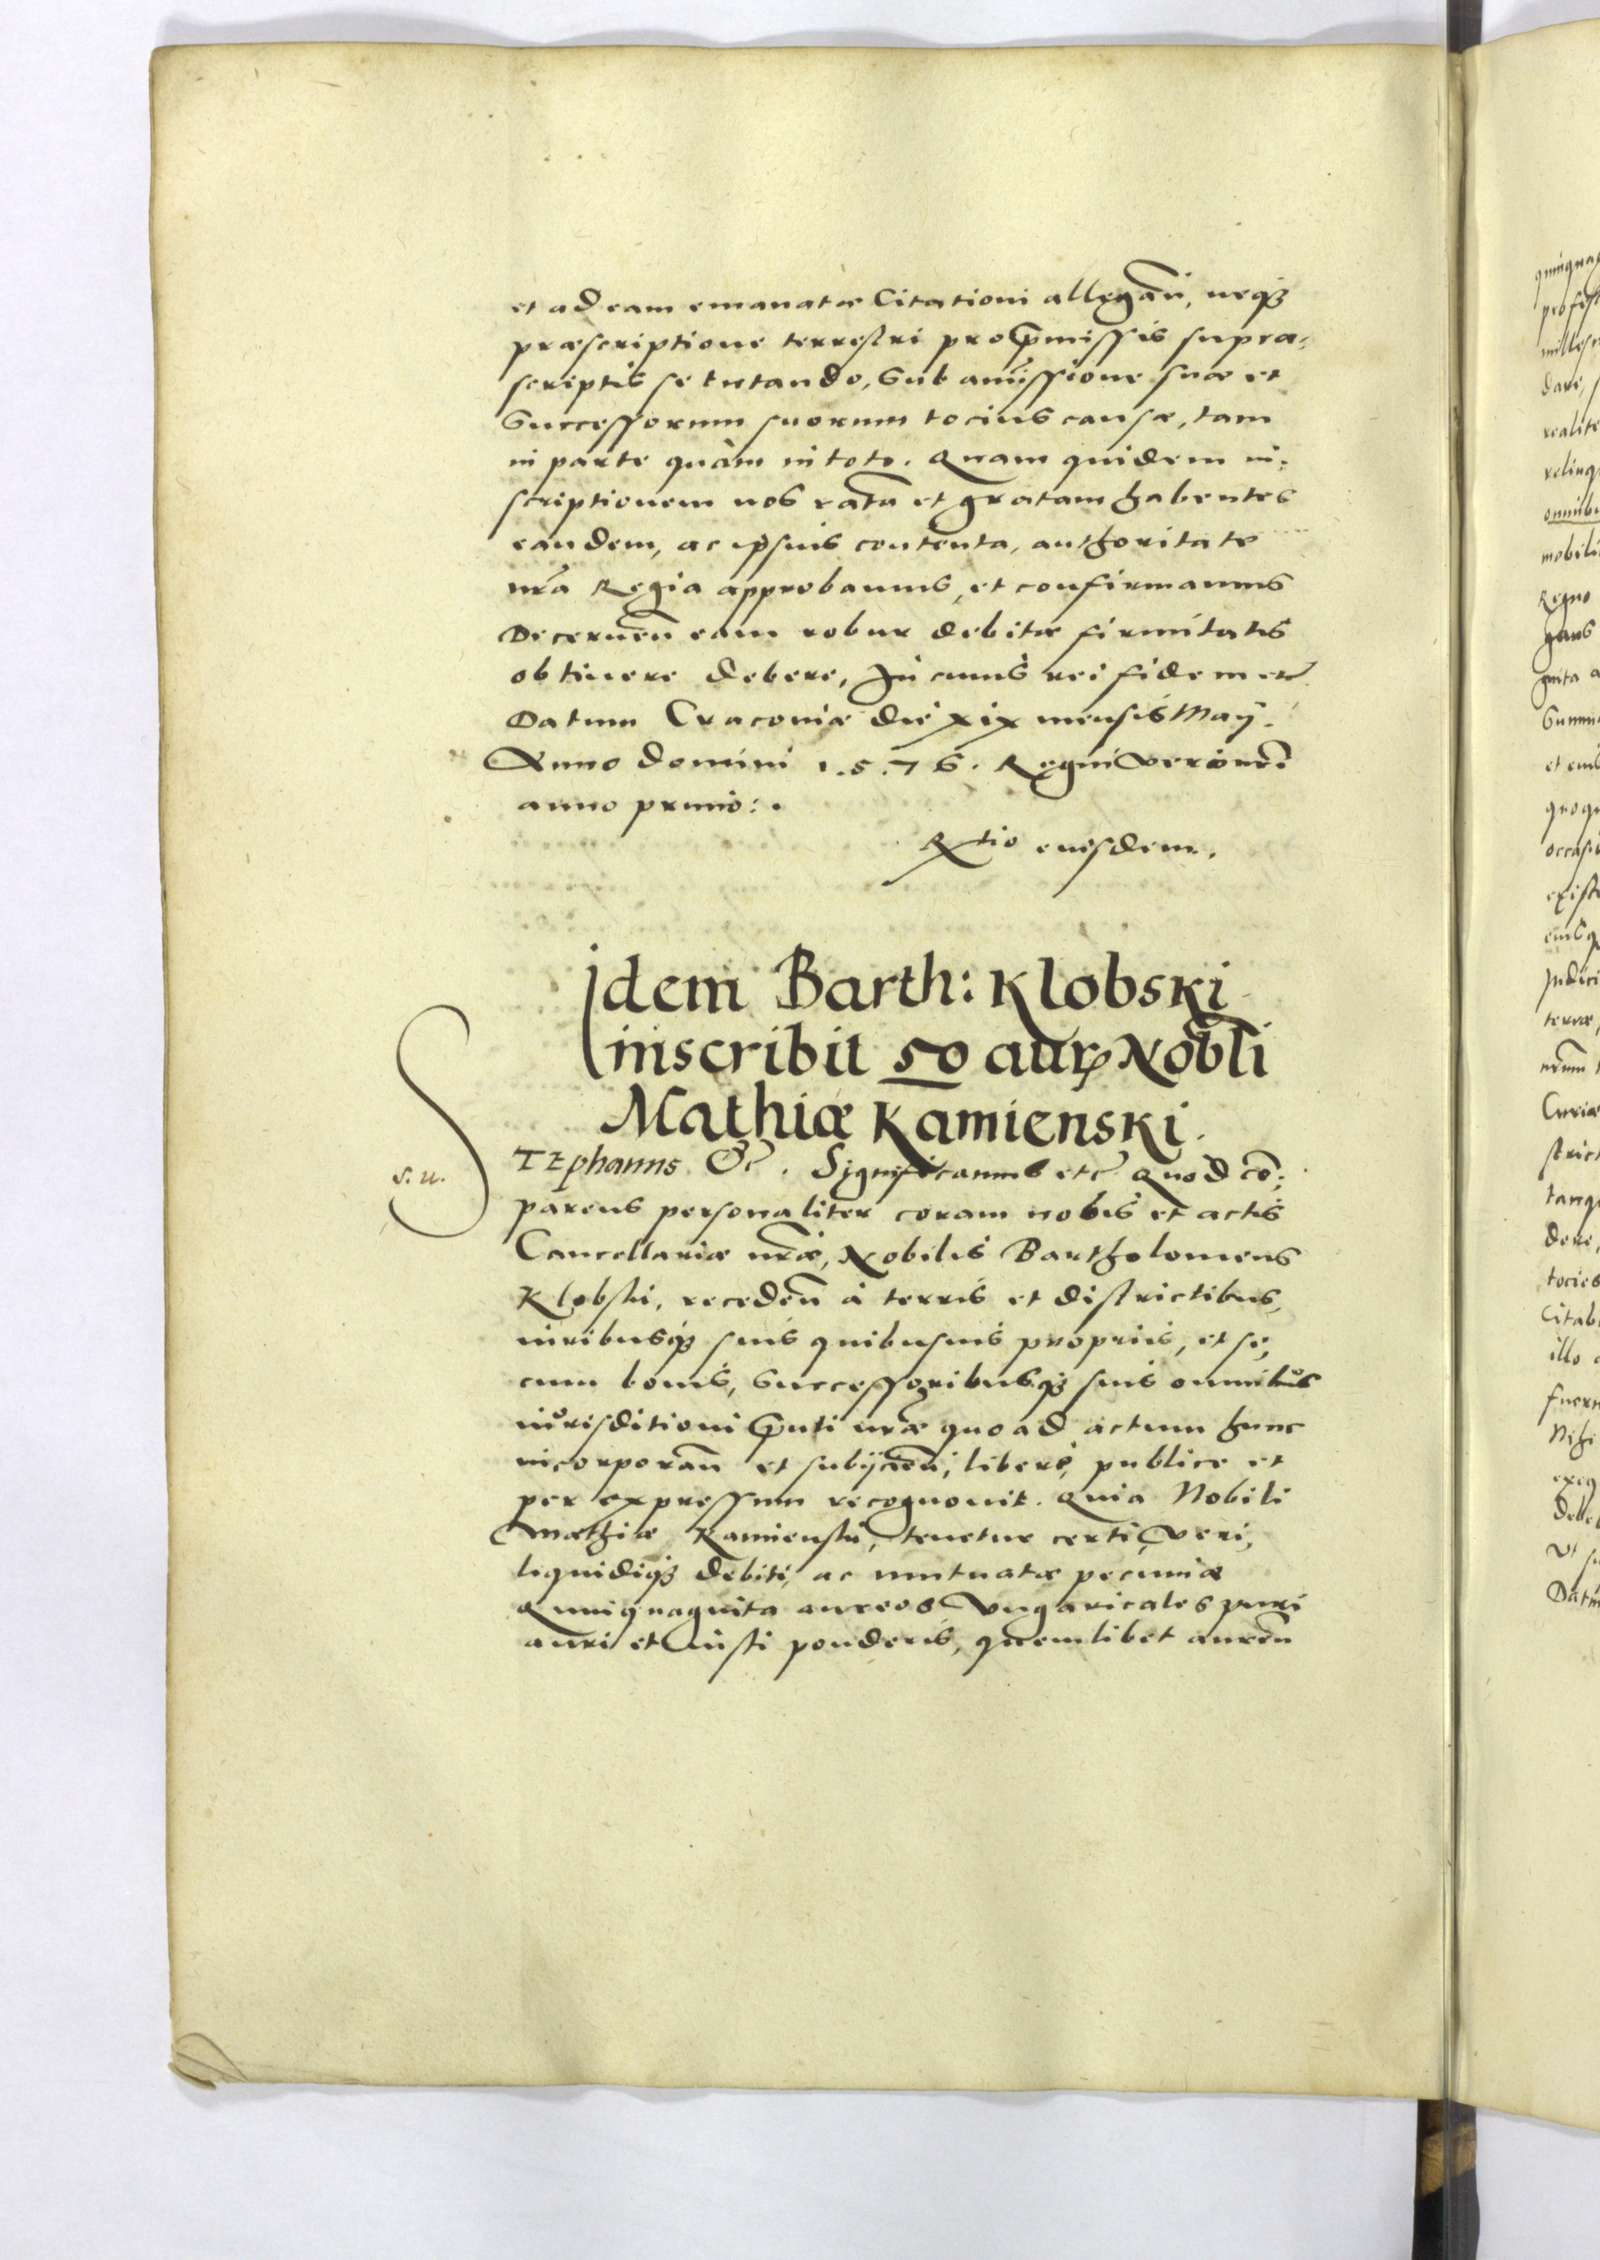 et ad eam emanatæ Citationi allegan̄, neq3
præscriptione terrestri pro p̄missis supra-
scriptis se tutando, sub amissione suæ et
Successorum suorum tocius causæ, tam
in parte quàm in toto. Quam quidem in-
scriptionem nos ratā et gratam habentes
eandem, ac ipsius contenta, authoritate
nr̄a Regia approbamus, et confirmamus
Decernen̄ eam robur debitæ firmitatis
obtinere debere, In cuius rei fidem etc
Datum Cracoviæ die xix mensis Maÿ.
Anno Domini 1.5.76. Regni vero nr̄i
anno primo:.
Rtio eiusdem.
Idem Barth: Klobski
inscribit 50 aur. Nobli
Mathiæ Kamienski.
STEphanus &c. Significamus etc Quod cō-
parens personaliter coram nobis et actis
Cancellariæ nr̄æ, Nobilis Bartholomeus
Klobski, receden̄ à terris et districtibus,
iuribusq3 suis quibusuis propriis, et se,
cum bonis, Successoribusq3 suis omnibus
iurisditioni p̄nti nr̄æ quo ad actum hunc
incorporan̄ et subÿcien̄, liberè, publice et
per expressum recognouit. Quia Nobili
Mathiæ Kamienski, tenetur certi, veri,
liquidiq3 debiti, ac mutuatæ pecuniæ
Quinquaginta aureos Vngaricales puri
auri et iusti ponderis, quemlibet aureū
s. u.